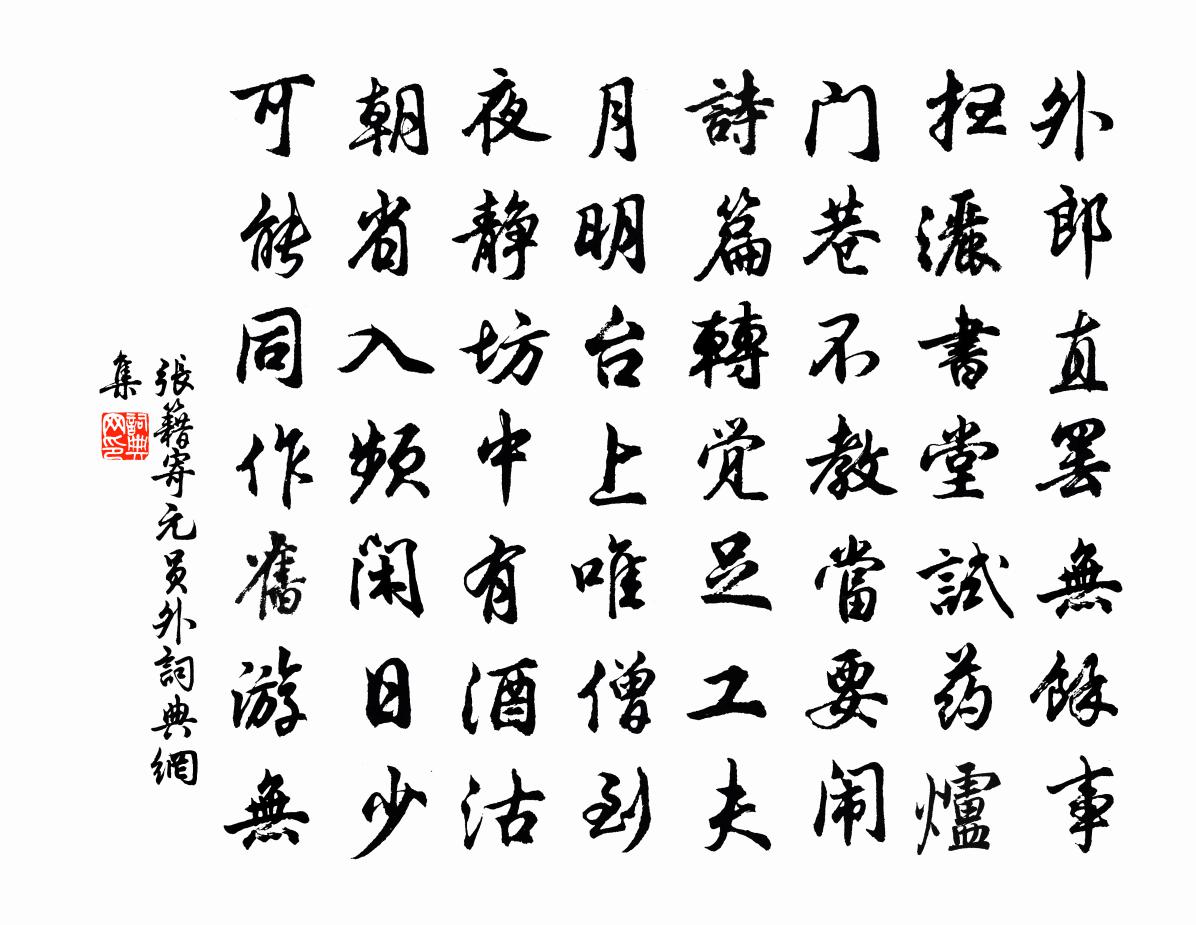 外郎直罢無餘事
扫灑書堂試药爐
门巷不教當要闹
詩篇轉觉足工夫
月明台上唯僧到
夜静坊中有酒沽
朝省入频闲日少
可能同作舊游無
張籍寄元员外詞典網
集
詞典网印